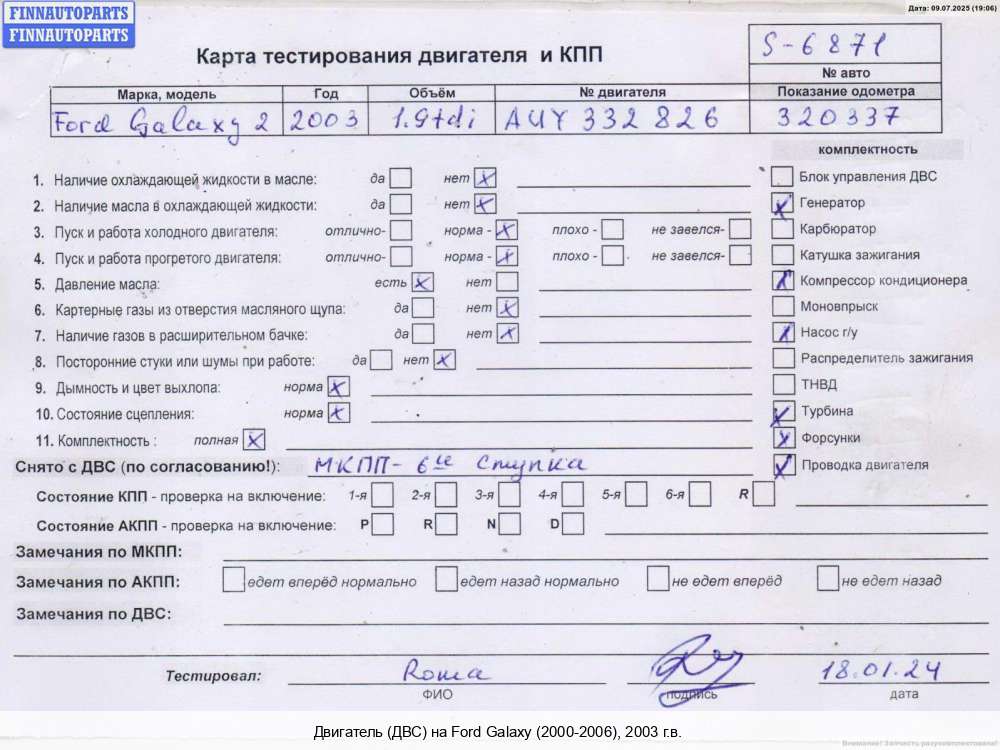 FINNAUTOPARTS
FINNAUTOPARTS
Дата: 09.07.2025 (19:06)
Карта тестирования двигателя и КПП
S-6871
№ авто
Марка, модель Год Объём № двигателя Показание одометра
Ford Galaxy 2 2003 1.9tdi AUY 332 826 320337
комплектность
1. Наличие охлаждающей жидкости в масле: да нет Блок управления ДВС
2. Наличие масла в охлаждающей жидкости: да нет Генератор
3. Пуск и работа холодного двигателя: отлично- норма - плохо - не завелся- Карбюратор
4. Пуск и работа прогретого двигателя: отлично- норма - плохо - не завелся- Катушка зажигания
5. Давление масла: есть нет Компрессор кондиционера
6. Картерные газы из отверстия масляного щупа: да нет Моновпрыск
7. Наличие газов в расширительном бачке: да нет Насос г/у
8. Посторонние стуки или шумы при работе: да нет Распределитель зажигания
9. Дымность и цвет выхлопа: норма ТНВД
10. Состояние сцепления: норма Турбина
11. Комплектность : полная Форсунки
Снято с ДВС (по согласованию!): МКПП- 6ке ступка Проводка двигателя
Состояние КПП - проверка на включение: 1-я 2-я 3-я 4-я 5-я 6-я R
Состояние АКПП - проверка на включение: P R N D
Замечания по МКПП:
Замечания по АКПП: едет вперёд нормально едет назад нормально не едет вперёд не едет назад
Замечания по ДВС:
Тестировал: Roma 18.01.24
ФИО подпись дата
Двигатель (ДВС) на Ford Galaxy (2000-2006), 2003 г.в.
Внимание! Запчасть разукомплектована!